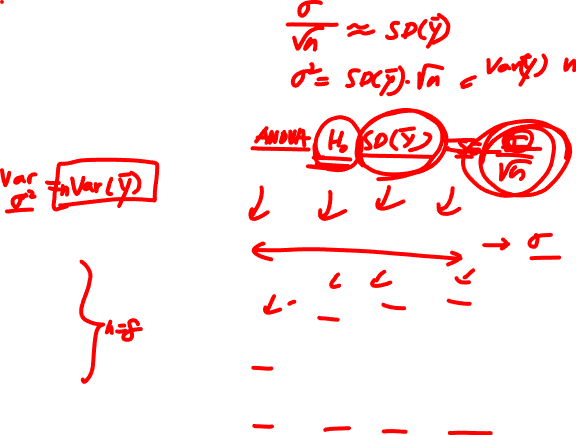 σ/√n ≈ SD(ȳ)
σ² = SD(ȳ)·√n Var(ȳ) n
ANOVA H₀ SD(ȳ) σ/√n
Var
σ² = nVar(ȳ)
→ σ
n=8